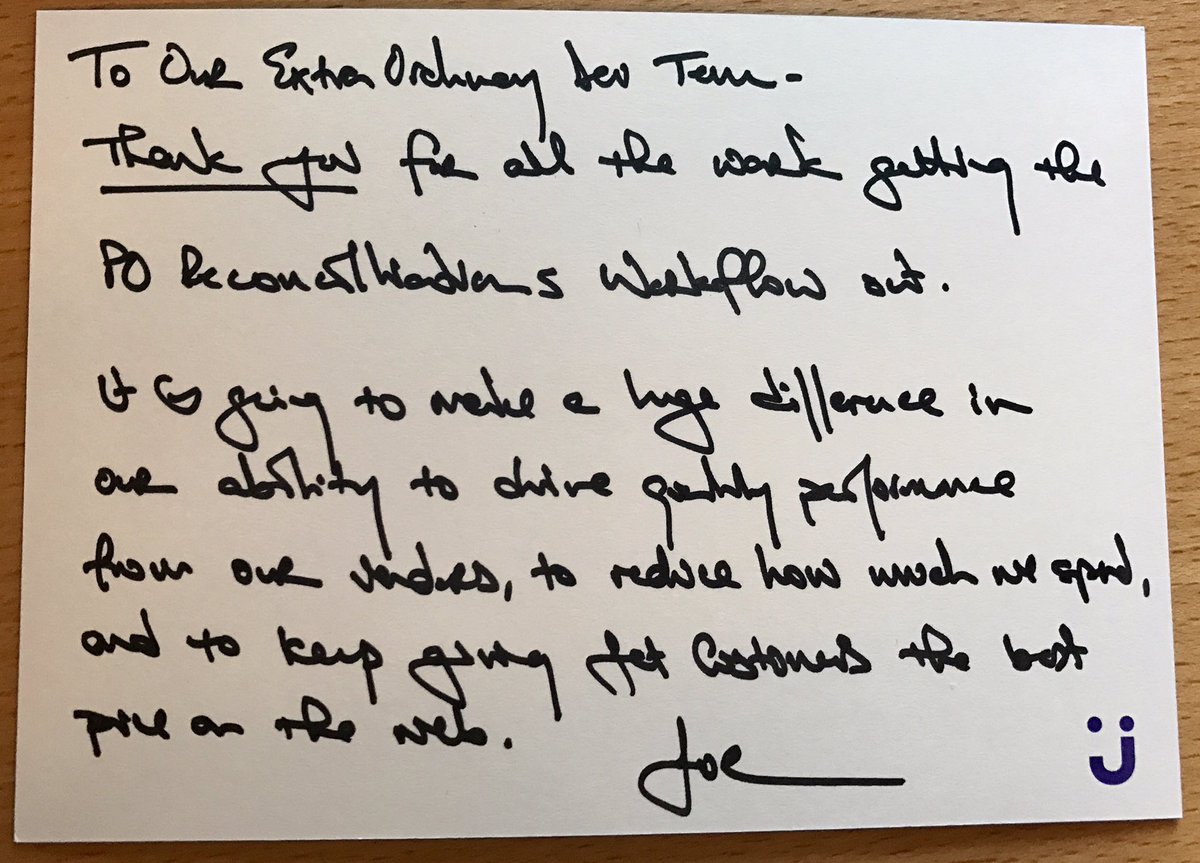 To Our ExtraOrdinary Dev Team -
Thank you for all the work getting the
PO Reconciliations Workflow out.
It is going to make a huge difference in
our ability to drive quality performance
from our vendors, to reduce how much we spend,
and to keep giving Jet Customers the best
price on the web.
Joe